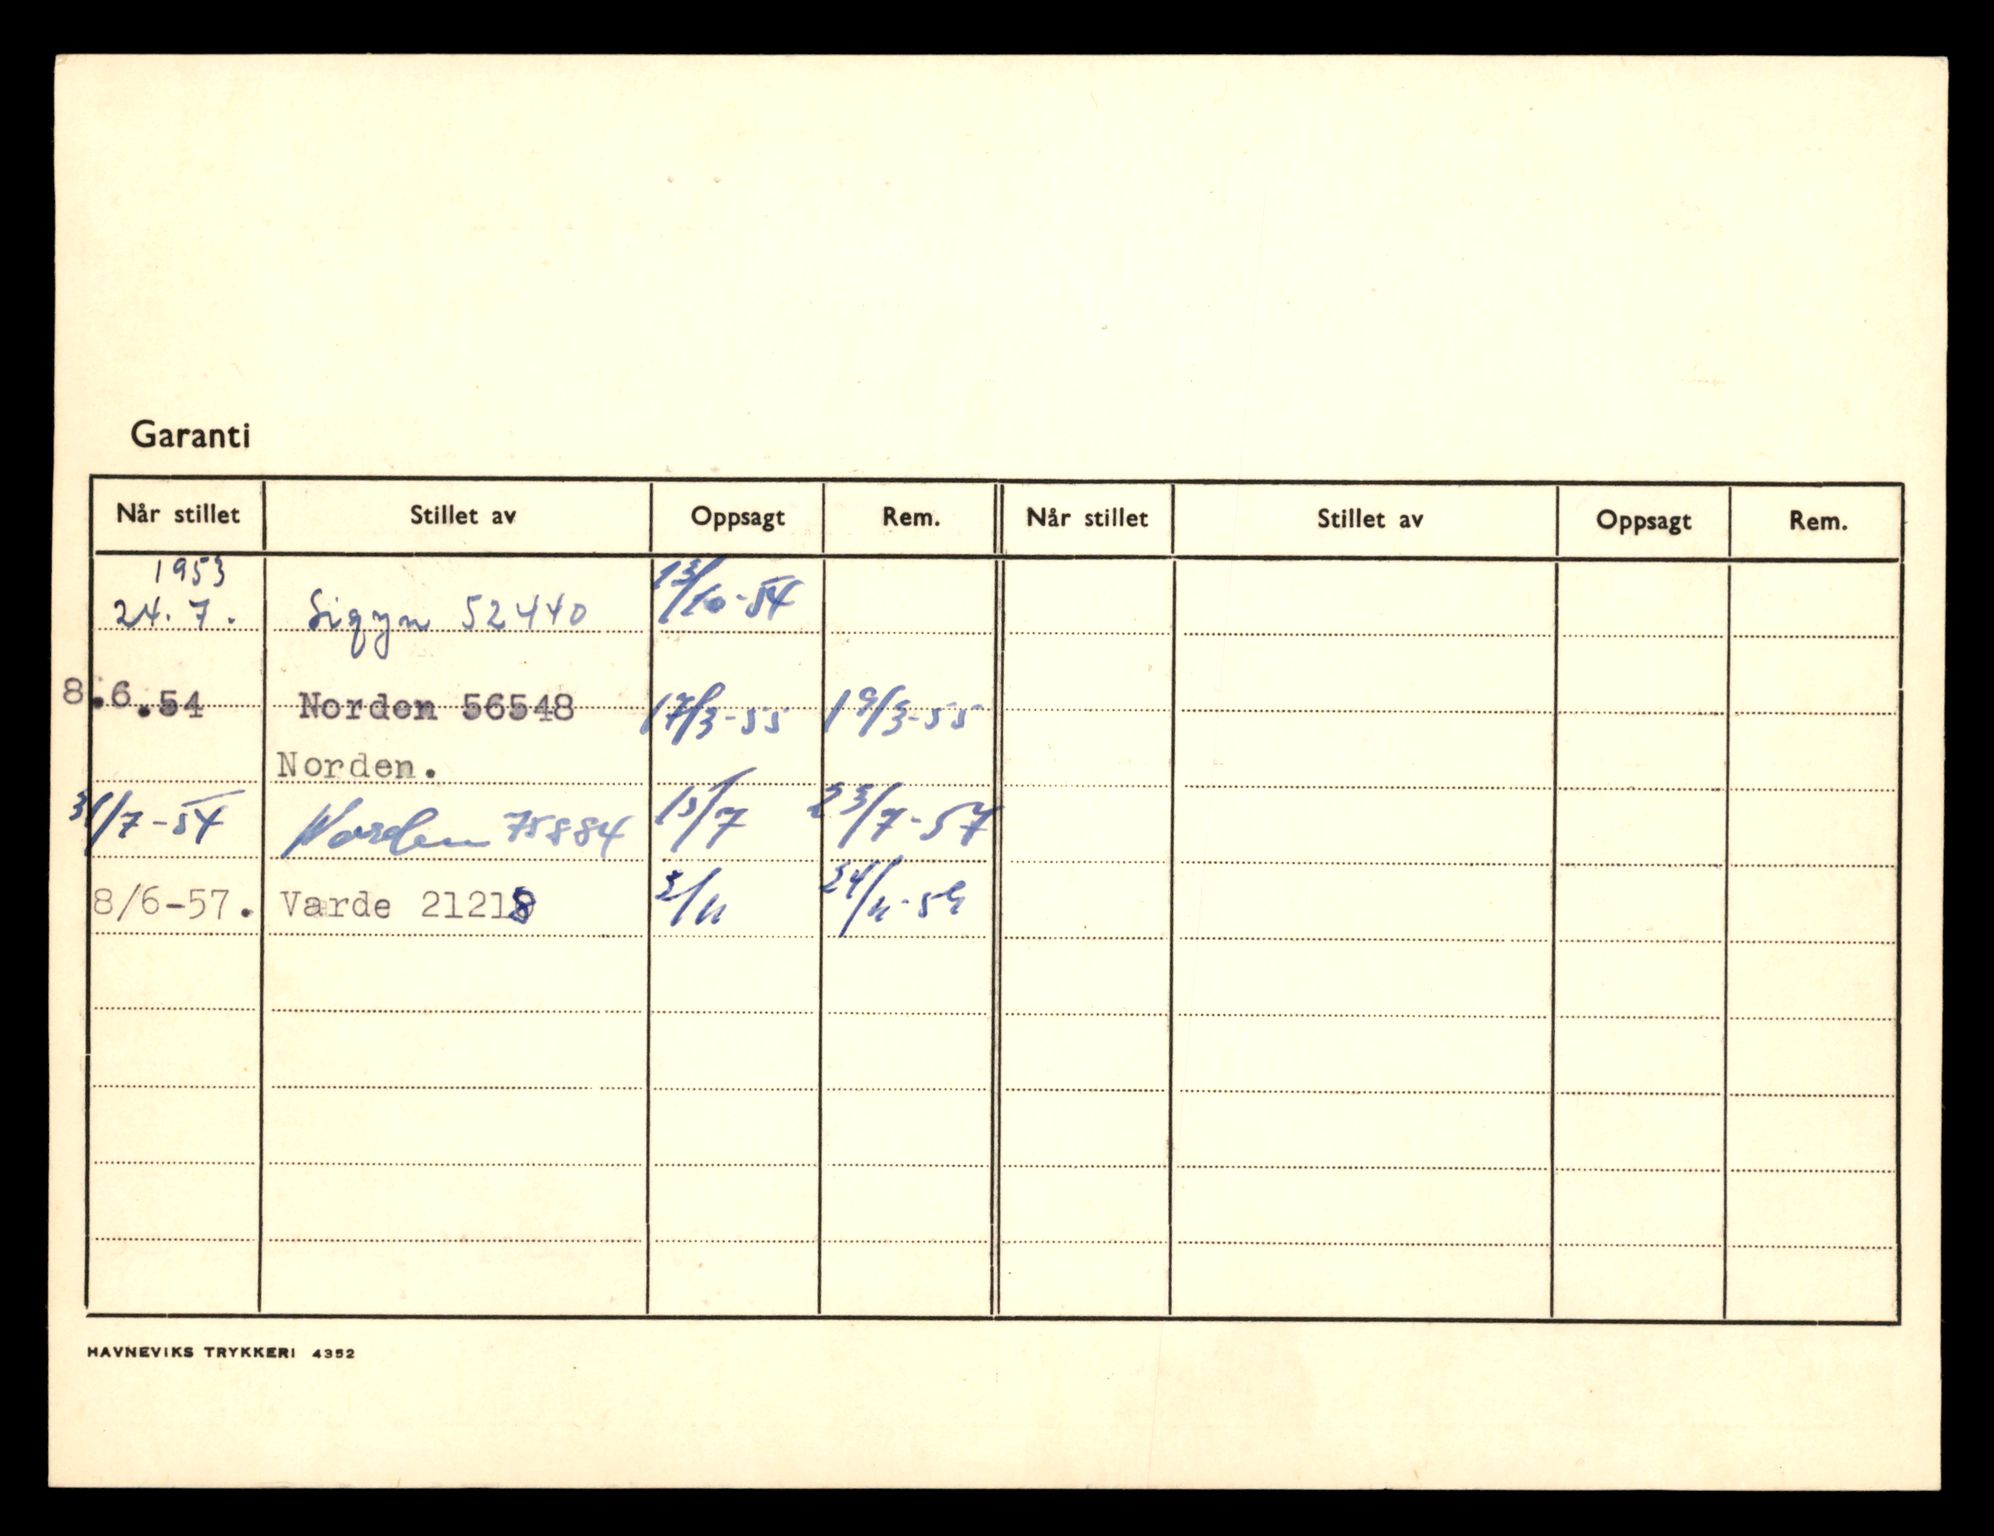 Garanti
Når stillet Stillet av Oppsagt Rem. Når stillet Stillet av Oppsagt Rem.
1953
24.7. Sigyn 52440 13/10-54
8.6.54 Norden 56548 17/3-55 19/3-55
Norden.
31/7-54 Norden 75884 15/7 23/7-57
8/6-57. Varde 21218
HAVNEVIKS TRYKKERI 4352